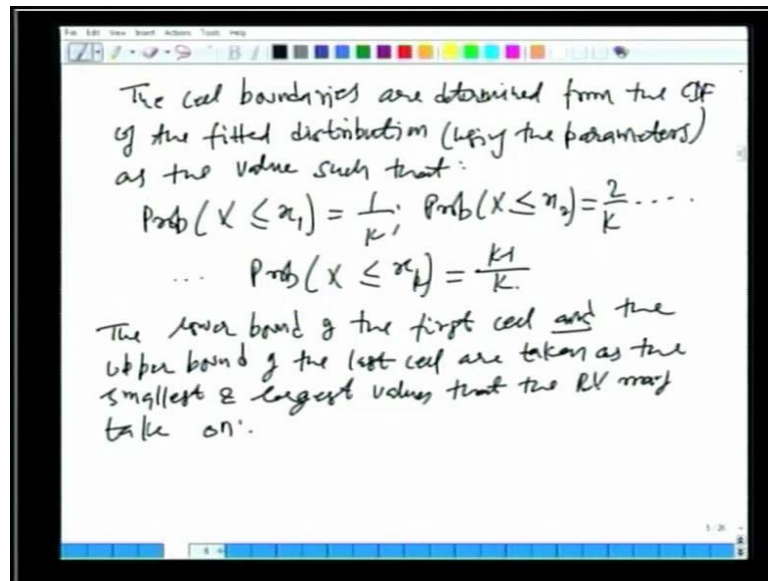 File Edit View Insert Actions Tools Help
The cell boundaries are determined from the CDF
of the fitted distribution (using the parameters)
as the value such that:
Prob(X ≤ x₁) = 1/K, Prob(X ≤ x₂) = 2/K ....
... Prob(X ≤ x_k) = K-1/K.
The lower bound of the first cell and the
upper bound of the last cell are taken as the
smallest & largest values that the RV may
take on.